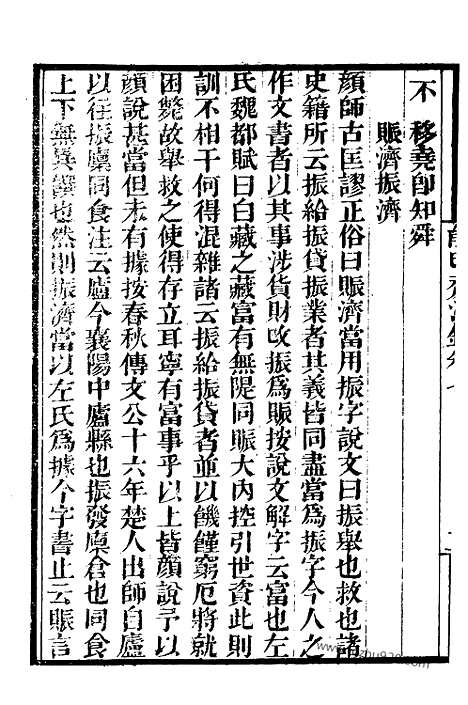 不移堯卽知舜
賑濟振濟
顏師古匡謬正俗曰賑濟當用振字說文曰振舉也救也諸
史籍所云振給振貸振業者其義皆同盡當爲振字今人之
作文書者以其事涉貨財改振爲賑按說文解字云富也左
氏魏都賦曰白藏之藏富有無隄同賑大內控引世資此則
訓不相干何得混雜諸云振給振貸者並以饑饉窮厄將就
困斃故舉救之使得存立耳寧有富事乎以上皆顏說予以
顏說甚當但未有據按春秋傳文公十六年楚人出師自廬
以往振廩同食注云廬今襄陽中廬縣也振發廩倉也同食
上下無異饌也然則振濟當以左氏爲據今字書止云賑言